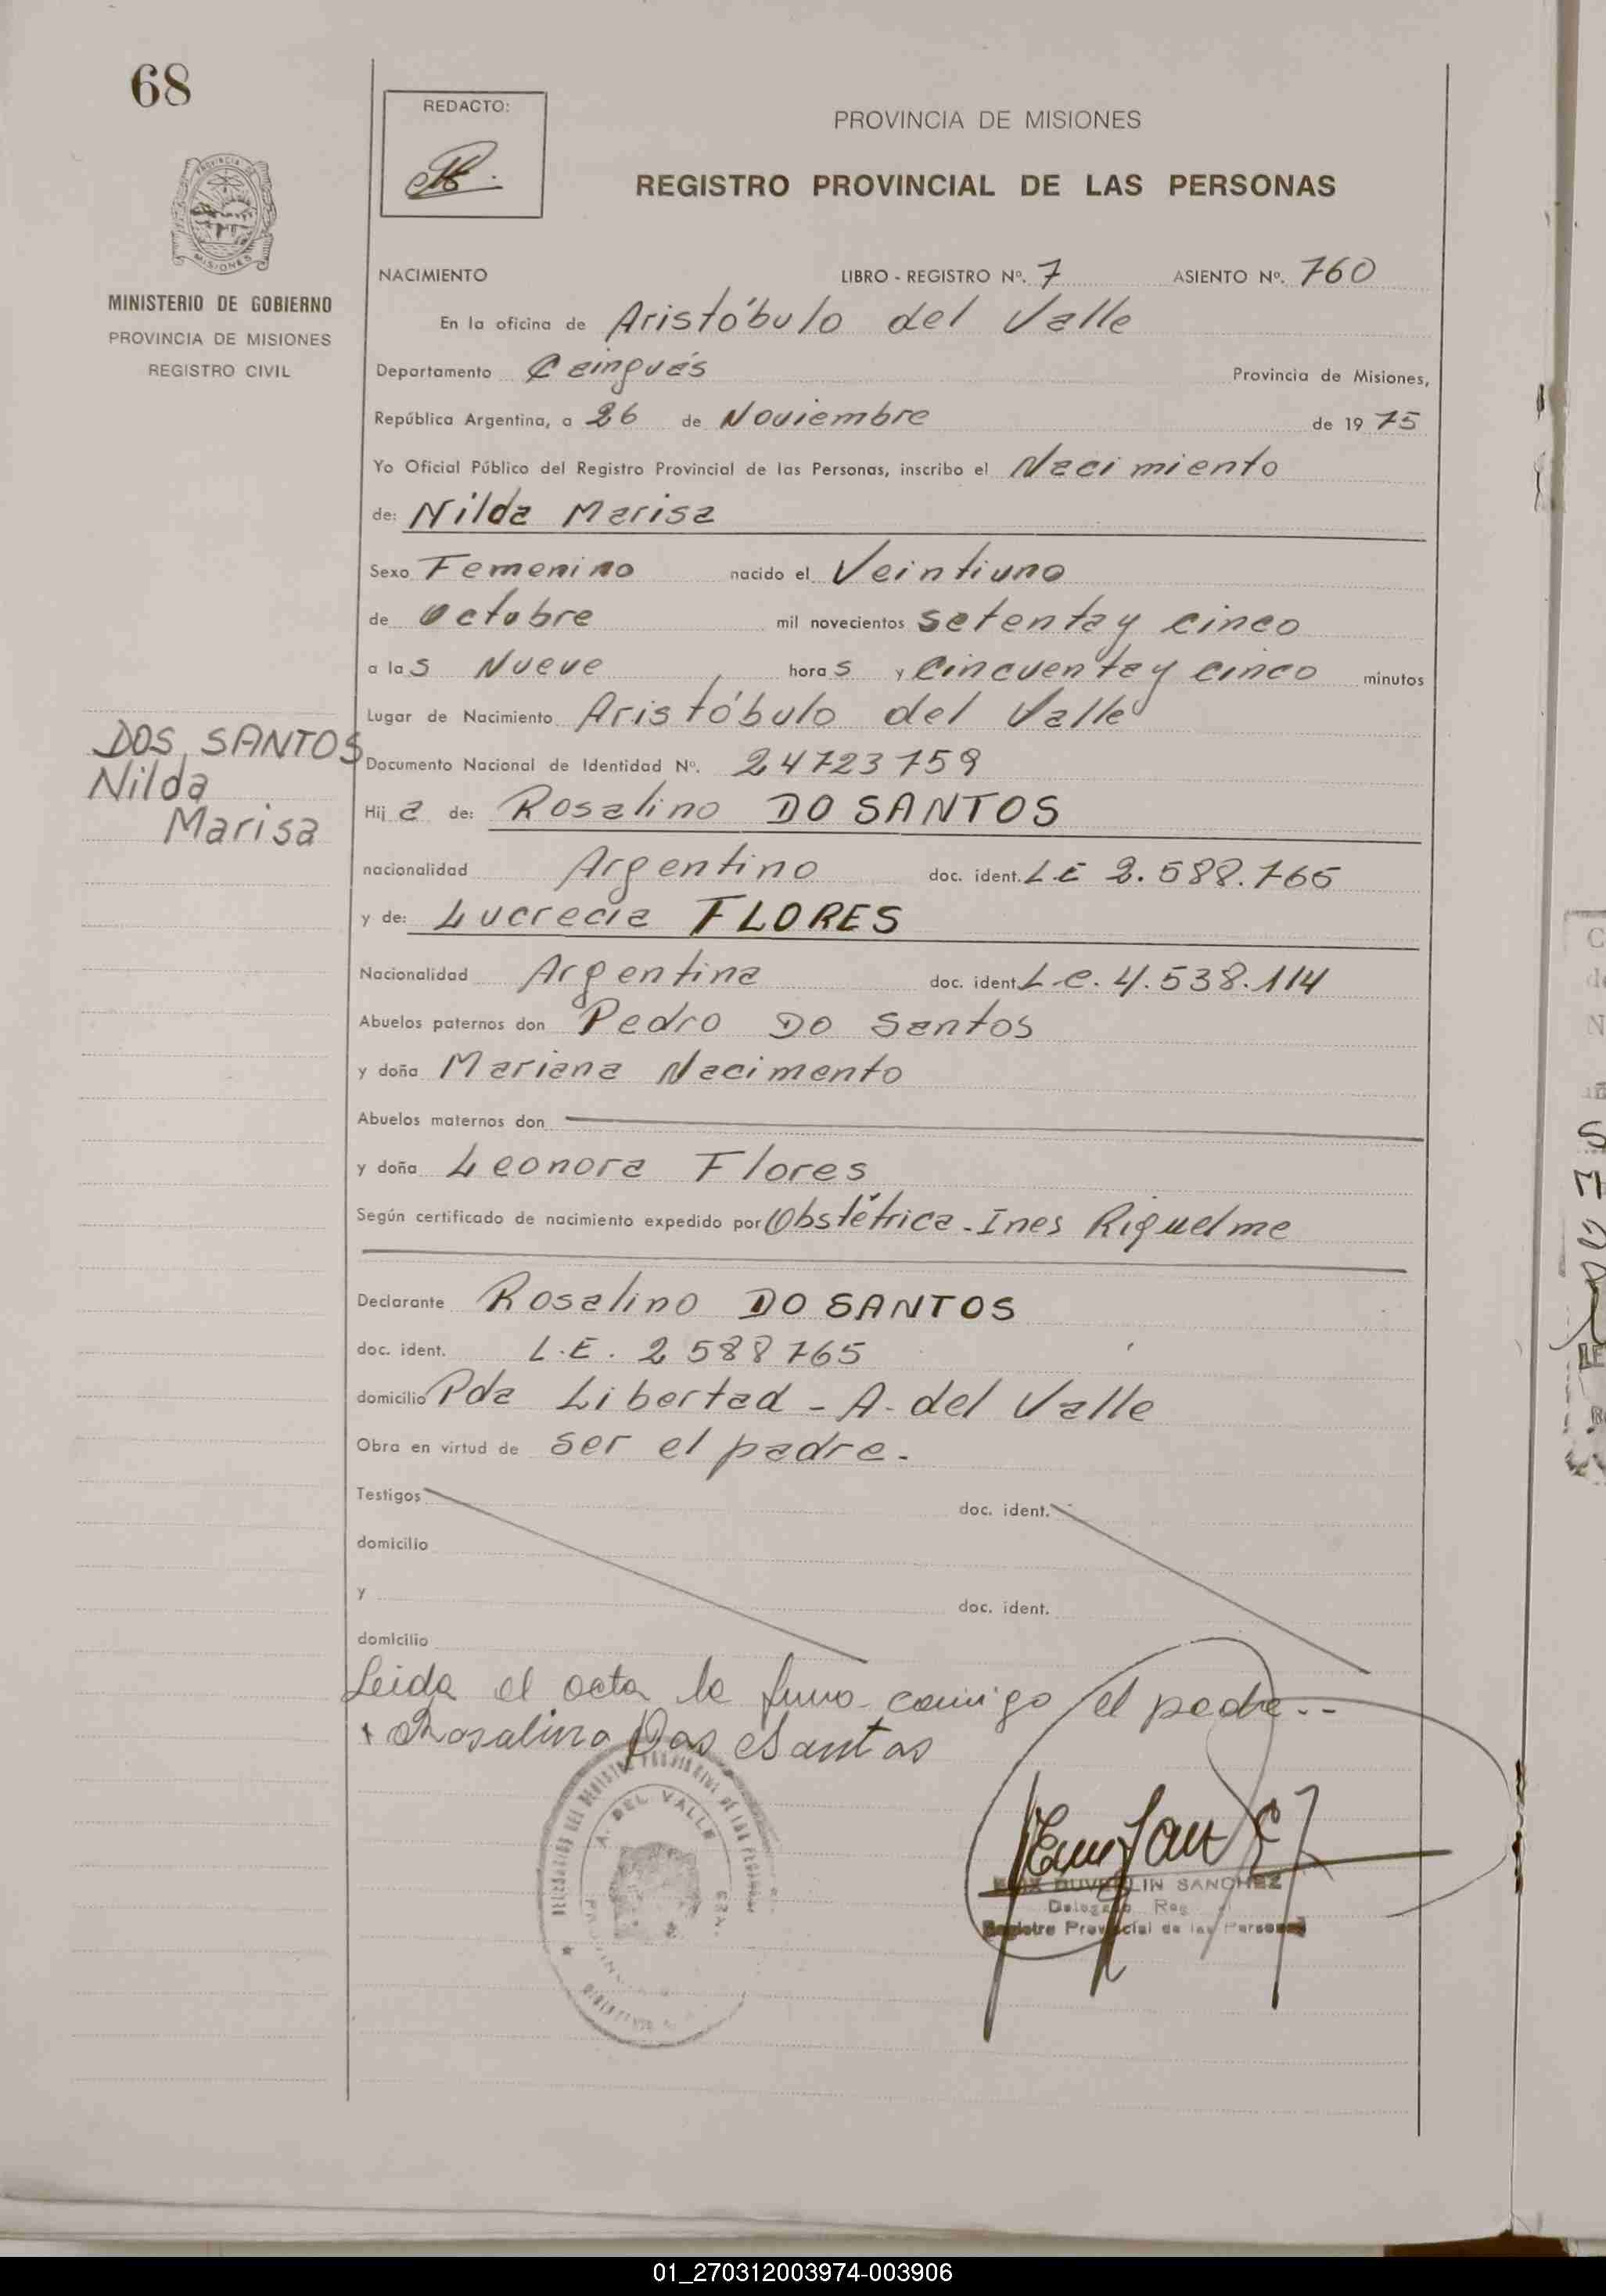 68
REDACTO:
PROVINCIA DE MISIONES
REGISTRO PROVINCIAL DE LAS PERSONAS
PROVINCIA DE
MISIONES
MINISTERIO DE GOBIERNO
PROVINCIA DE MISIONES
REGISTRO CIVIL
NACIMIENTO LIBRO - REGISTRO Nº. 7 ASIENTO Nº. 760
En la oficina de Aristóbulo del Valle
Departamento Cainguás Provincia de Misiones,
República Argentina, a 26 de Noviembre de 19 75
Yo Oficial Público del Registro Provincial de las Personas, inscribo el Nacimiento
de: Nilda Marisa
Sexo Femenino nacido el Veintiuno
de Octubre mil novecientos setenta y cinco
a las Nueve horas y Cincuenta y cinco minutos
Lugar de Nacimiento Aristóbulo del Valle
DOS SANTOS
Nilda
Marisa
Documento Nacional de Identidad Nº. 24723759
Hija de: Rosalino DO SANTOS
nacionalidad Argentino doc. ident. LE 2.588.765
y de: Lucrecia FLORES
Nacionalidad Argentina doc. ident. L.C. 4.538.114
Abuelos paternos don Pedro Do Santos
y doña Mariana Nacimento
Abuelos maternos don
y doña Leonora Flores
Según certificado de nacimiento expedido por Obstétrica - Ines Riquelme
Declarante Rosalino DO SANTOS
doc. ident. L.E. 2588765
domicilio Pda Libertad - A. del Valle
Obra en virtud de ser el padre.
Testigos doc. ident.
domicilio
y doc. ident.
domicilio
Leida el acta la firma conmigo el padre..
Rosalino Dos Santos
DELEGACION DEL REGISTRO PROVINCIAL DE LAS PERSONAS
A. DEL VALLE
SANCHEZ
Registro Provincial de las Personas
01_270312003974-003906